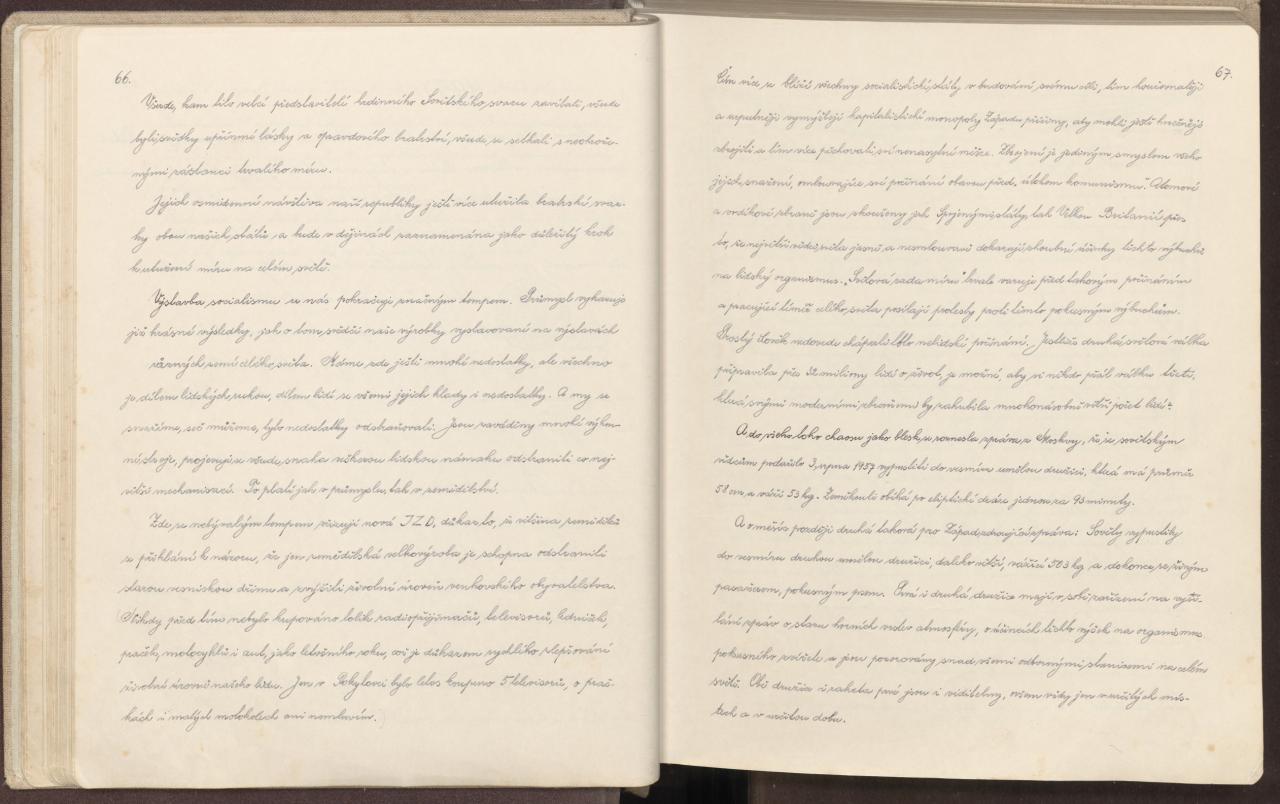 66.
Všude, kam tito velcí představitelé hrdinného Sovětského svazu zavítali, všude
byli svědky upřímné lásky a opravdového bratrství, všude se setkali s neohrože-
nými zástanci trvalého míru.
Jejich osmidenní návštěva naší republiky ještě více utužila bratrské svaz-
ky obou našich států a bude v dějinách zaznamenána jako důležitý krok
k utužení míru na celém světě.
Výstavba socialismu u nás pokračuje značným tempem. Průmysl vykazuje
již krásné výsledky, jak o tom svědčí naše výrobky vystavované na výstavách
různých zemí celého světa. Máme zde ještě mnohé nedostatky, ale všechno
je dílem lidských rukou, dílem lidí se všemi jejich klady i nedostatky. A my se
snažíme, seč můžeme, tyto nedostatky odstraňovati. Jsou zaváděny mnohé výkon-
né stroje, projevuje se všude snaha veškerou lidskou námahu odstraniti co nej-
větší mechanisací. To platí jak v průmyslu, tak v zemědělství.
Zde se nebývalým tempem vzrůstají nová JZD, důkaz to, že většina zemědělců
se přiklání k názoru, že jen zemědělská velkovýroba je schopna odstraniti
starou vesnickou dřinu a zvýšiti životní úroveň venkovského obyvatelstva.
Nikdy před tím nebylo kupováno tolik radiopřijimačů, televisorů, ledniček,
praček, motocyklů i aut, jako letošního roku, což je důkazem rychlého zlepšování
životní úrovně našeho lidu. Jen v Pohybovci bylo letos koupeno 5 televisorů, o prač-
kách i malých motokolech ani nemluvím.
67.
Čím více se blíží všechny socialistické státy v budování svému cíli, tím houževnatěji
a urputněji vymýšlejí kapitalistické monopoly Západu příčiny, aby mohli ještě horečněji
zbrojiti a tím více päčovati své nenasytné měšce. Zbrojení je jediným smyslem všeho
jejich snažení, omlouvajíce své počínání obavou před „útokem komunismu". Atomové
a vodíkové zbraně jsou zkoušeny jak Spojenými státy, tak Velkou Britanií přes
to, že největší vědci světa jasně a nesmlouvavě dokazují zhoubné účinky těchto výbuchů
na lidský organismus. „Světová rada míru" trvale varuje před takovým počínáním
a pracující téměř celého světa posílají protesty proti těmto pokusným výbuchům.
Prostý člověk nedovede chápati toto nelidské počínání. Jestliže druhá světová válka
připravila přes 32 miliony lidí o život, je možné, aby si někdo přál válku třetí,
která svými moderními zbraněmi by zahubila mnohonásobně větší počet lidí?
A do všeho toho chaosu jako blesk se roznesla zpráva z Moskvy, že se sovětským
vědcům podařilo 3. srpna 1957 vypustiti do vesmíru umělou družici, která má průměr
58 cm a váží 53 kg. Zeměkouli obíhá po eliptické dráze jednou za 95 minuty.
A o měsíc později druhá taková pro Západ zdrcující zpráva: Sověty vypustily
do vesmíru druhou umělou družici, daleko větší, vážící 503 kg a dokonce se živým
pasažérem, pokusným psem. Prvá i druhá družice mají v sobě zařízení na vysí-
lání zpráv o stavu horních vrstev atmosféry, o účincích těchto výšek na organismus
pokusného zvířete a jsou pozorovány snad všemi odbornými stanicemi na celém
světě. Obě družice i raketa prvé jsou i viditelny, ovšem vždy jen v určitých mís-
tech a v určitou dobu.